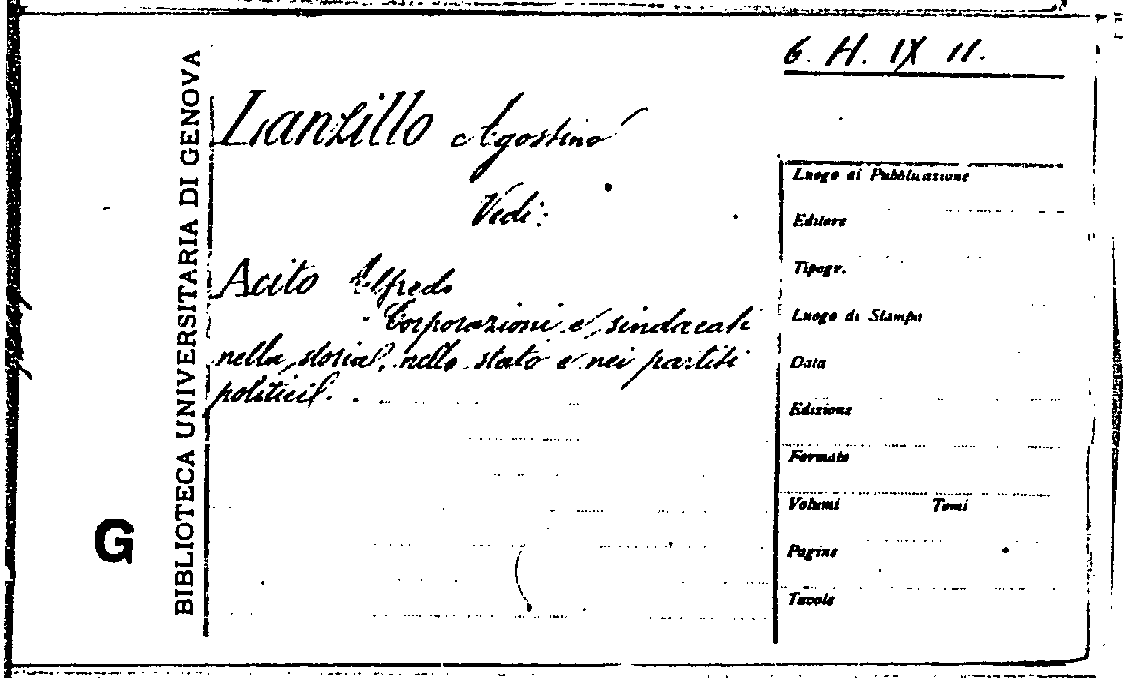 6. H. IX 11.
BIBLIOTECA UNIVERSITARIA DI GENOVA
G
Lanzillo Agostino
Vedi:
Acito Alfredo
Corporazioni e sindacati
nella storia, nello stato e nei partiti
politici.
Luogo di Pubblicazione
Editore
Tipogr.
Luogo di Stampa
Data
Edizione
Formato
Volumi Tomi
Pagine
Tavole